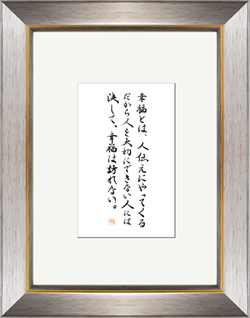 幸福とは、人伝えにやってくる
だから人を大切にできない人には
決して、幸福は訪れない。